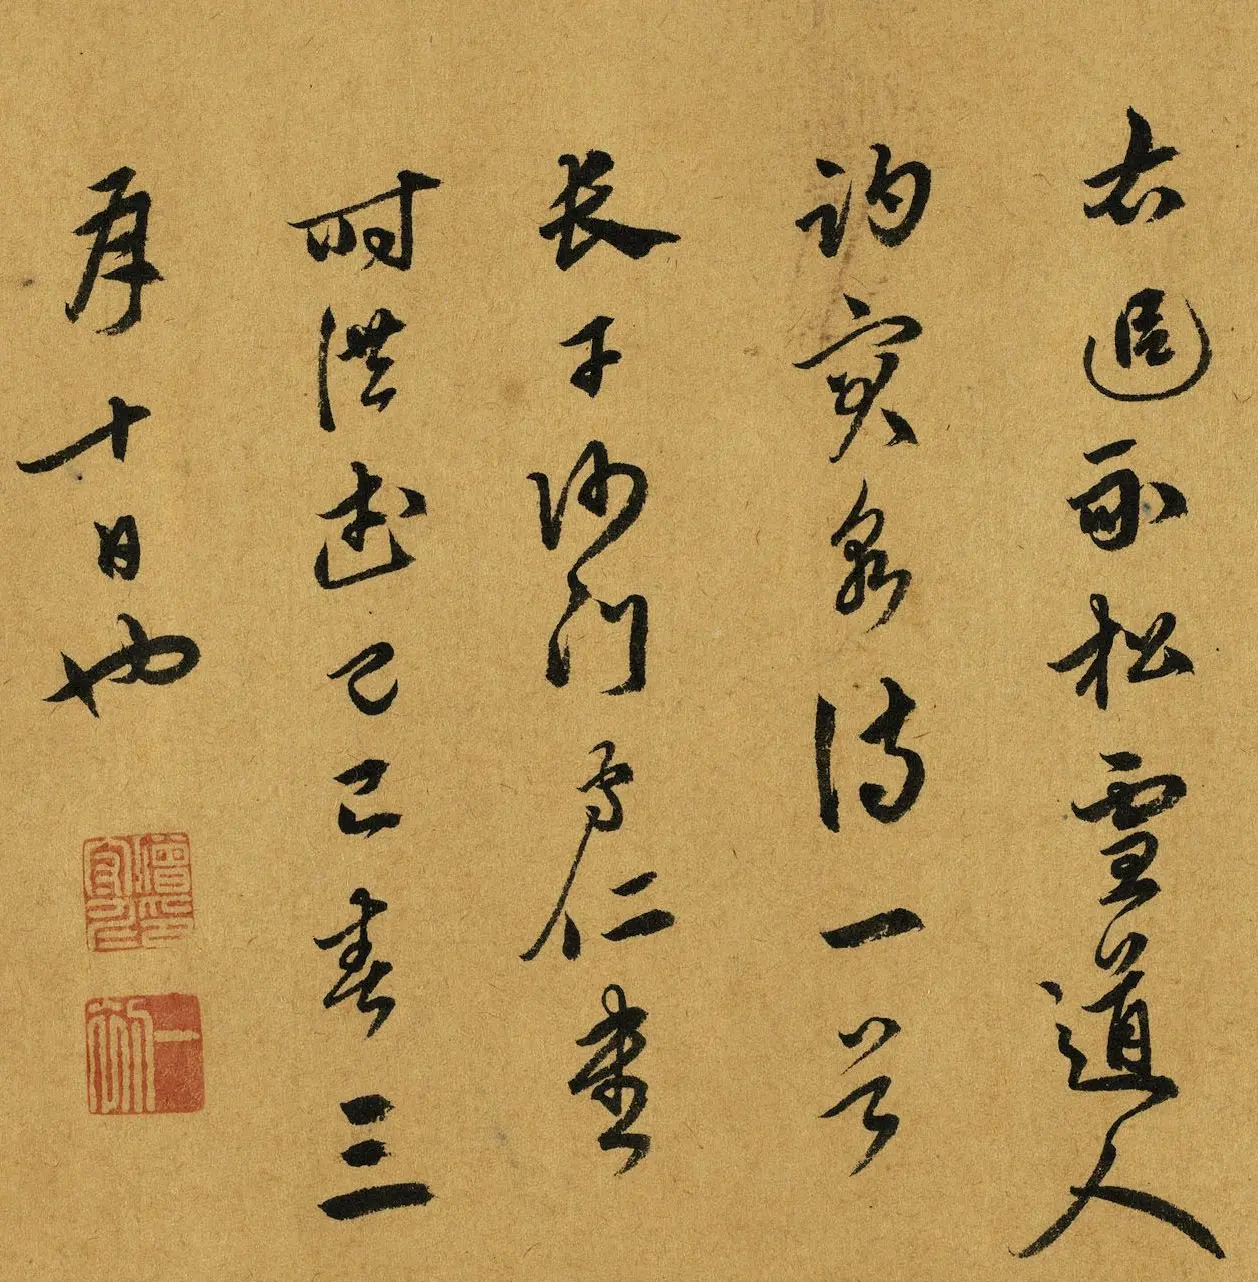 右追和松雪道人
泉詩一首
長干沙門守仁書
時洪武己巳春三
月十日也
僧印守仁
一初